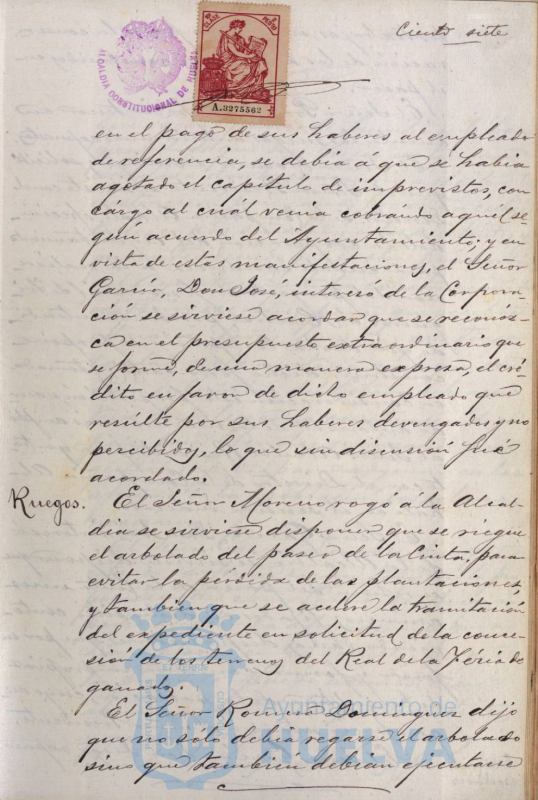 Ciento siete
ALCALDIA CONSTITUCIONAL DE HUELVA
A.3275562
en el pago de sus haberes al empleado
de referencia, se debia á que se habia
agotado el capítulo de imprevistos, con
cárgo al cuál venia cobrando aquél se-
gún acuerdo del Ayuntamiento; y en
vista de estas manifestaciones, el Señor
García, Don José, interesó de la Corpora-
ción se sirviese acordar que se reconoz-
ca en el presupuesto extraordinario que
se forme, de una manera expresa, el cré-
dito en favor de dicho empleado que
resúlte por sus haberes devengados y no
percibidos, lo que sin discusión fué
acordado.
Ruegos.
El Señor Moreno rogó á la Alcal-
dia se sirviese disponer que se riegue
el arbolado del paseo de la Cinta, para
evitar la pérdida de las plantaciones,
y tambien que se acelere la tramitación
del expediente en solicitud de la conce-
sión de los terrenos del Real de la Féria de
ganados.
El Señor Romero Dominguez dijo
que no sólo debia regarse el arbolado
sino que tambien debian ejecutarse
Ayuntamiento de
HUELVA